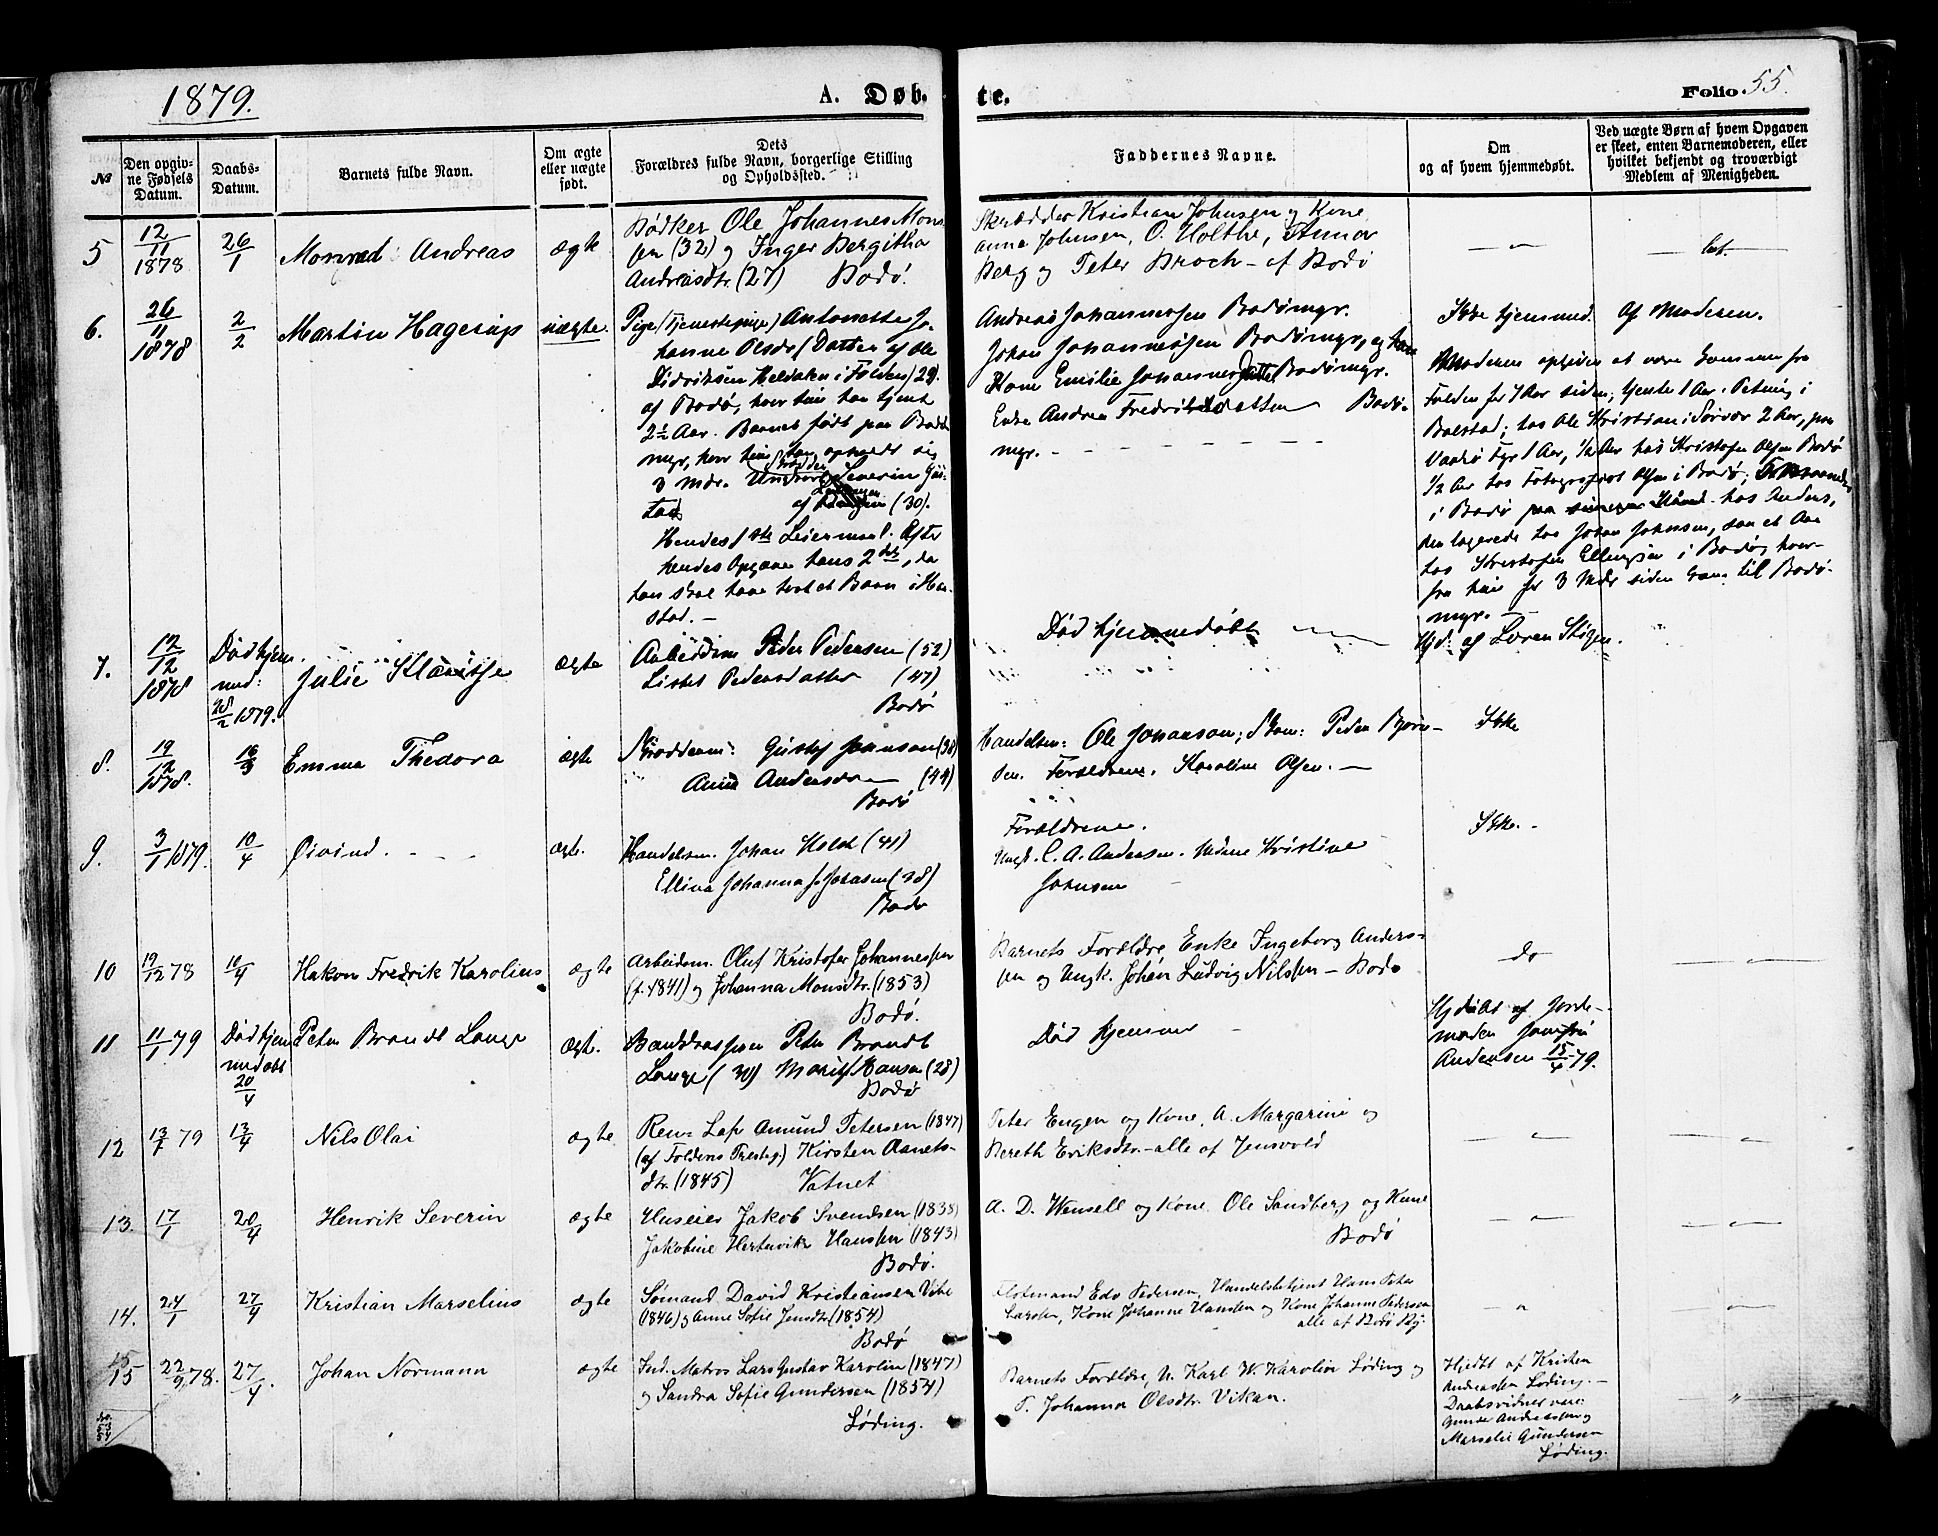 1879.
A. Døb.
te.
Folio 55.
№
Den opgiv-
ne Fødsels
Datum.
Daabs-
Datum.
Barnets fulde Navn.
Om ægte
eller uægte
født.
Dets
Forældres fulde Navn, borgerlige Stilling
og Opholdssted.
Faddernes Navne.
Om
og af hvem hjemmedøbt.
Ved uægte Børn af hvem Opgaven
er skeet, enten Barnemoderen, eller
hvilket bekjendt og troværdigt
Medlem af Menigheden.
5
12/11 1878
26/1
Monrad Andreas
ægte
Bødker Ole Johannes Mons
sen (32) og Inger Bergitha
Andreasdtr. (27) Bodø.
Skrædder Kristian Johnsen og Kone
Anna Johnsen, O. Holthe, Anna
Berg og Peter Broch - af Bodø
6.
26/11 1878
2/2
Martin Hagerup
uægte.
Pige (Tjenestepige) Antonette Jo-
hanne Olsdr (Datter af Ole
Didriksen i Folden) 29.
af Bodø, hvor hun har tjent
2½ Aar. Barnet født paa Bodø
myr, hvor hun har opholdt sig
3 Mdr. Severin
af (30).
Hendes 1ste Leiermaal. Efter
hendes Opgave hans 2det, da
han skal have havt et Barn i Har-
stad. —
Andreas Johannessen Bodømyr.
Johan Johannessen Bodømyr, og hans
Kone Emilie Johannesdatter Bodømyr.
Enke Andrea Fredriksdatter Bodø-
myr.
Ikke hjemmed.
Af Moderen.
Moderen opgives at være kommen fra
Folden for 7 Aar siden; tjente 1 Aar
Balstad; hos Ole Kristian i 2 Aar, paa
Fyr 1 Aar, ½ Aar hos Kristofer Olsen Bodø
½ Aar hos Fotograf Olsen i Bodø;
i Bodø hos Anders,
den hos Johan Johnsen, saa et Aar
hos Kristofer Ellingsen i Bodø, hvor-
fra hun for 3 Mdr siden kom til Bodø-
myr. —
7.
12/12 1878
Død hjem
med:
28/2 1879.
Julie
ægte
Arbeidsm Peder Pedersen (52)
Lisbet Pedersdatter (47)
Bodø
Død hjemmedøbt
Hjd: af Loren
8.
19/12 1878.
16/3
Emma Thedora
ægte
Gustaf Jonson (38)
Anna Andersdr (44)
Bodø
Handelsm: Ole Johanson; Peder Bjørn-
sen. Forældrene. Karoline Olsen. —
Ikke
9.
3/1 1879.
10/4
Øivind.
ægte.
Handelsm. Johan Holst (41)
Ellina Johanna Johnsen (28)
Bodø
Forældrene.
Ungk. C. A. Andersen. Kristine
Johnsen
Ikke. -
10
19/12 78
10/4
Hakon Fredrik Karolius
ægte
Arbeidsm. Oluf Kristofer Johannessen
(f. 1841) og Johanna Monsdtr. (1853)
Bodø.
Barnets Forældre, Enke Ingeborg Anders-
sen og Ungk. Johan Ludvig Nilssen - Bodø
do
11
11/1 79
Død hjem
medøbt
20/4
Peter Brandt Lange
Ægte.
Peter Brandt
Lange (30) Hansen (28)
Bodø
Død hjemme
Hjdøbt af Jorde-
moder Jomfru
Andersen 15/4 79.
12
13/1 79
13/4
Nils Olai
ægte
Ren- Lap Amund Petersen (1847)
(af Foldens Prestegj) Kirsten Aanets-
dtr. (1845) Vatnet
Peter Engen og Kone, A. Margarine og
Bereth Eriksdtr. - alle af Jensvold
13.
17/1
20/4
Henrik Severin
ægte
Huseier Jakob Svendsen (1838)
Jakobine Hertevikr Hanssen (1843)
Bodø.
A. D. Wensell og Kone. Ole Sandberg og Kone
Bodø
14.
24/1
27/4
Kristian Marselius
ægte
Sømand David Kristiansen Vibe
(1846) og Anne Sofie Jensdtr (1854)
Bodø
Flotmand Edv Pedersen, Handelsbetjent Hans Peter
Larsen, Kone Johanne Hansen og Kone Johanne Pedersen
alle af Bodø By.
15
15
22/9 78.
27/4.
Johan Normann
ægte
Ind. Matros Lars Gustav Karolin (1847)
og Sandra Sofie Gundersen (1854)
Løding.
Barnets Forældre, U. Karl W. Karolin Løding og
P. Johanna Olsdtr. Vikan.
Hjdbt af Kristen
Andreassen Løding. —
Daabsvidner vare:
Andreassen og
Marselie Gundersen
Løding.